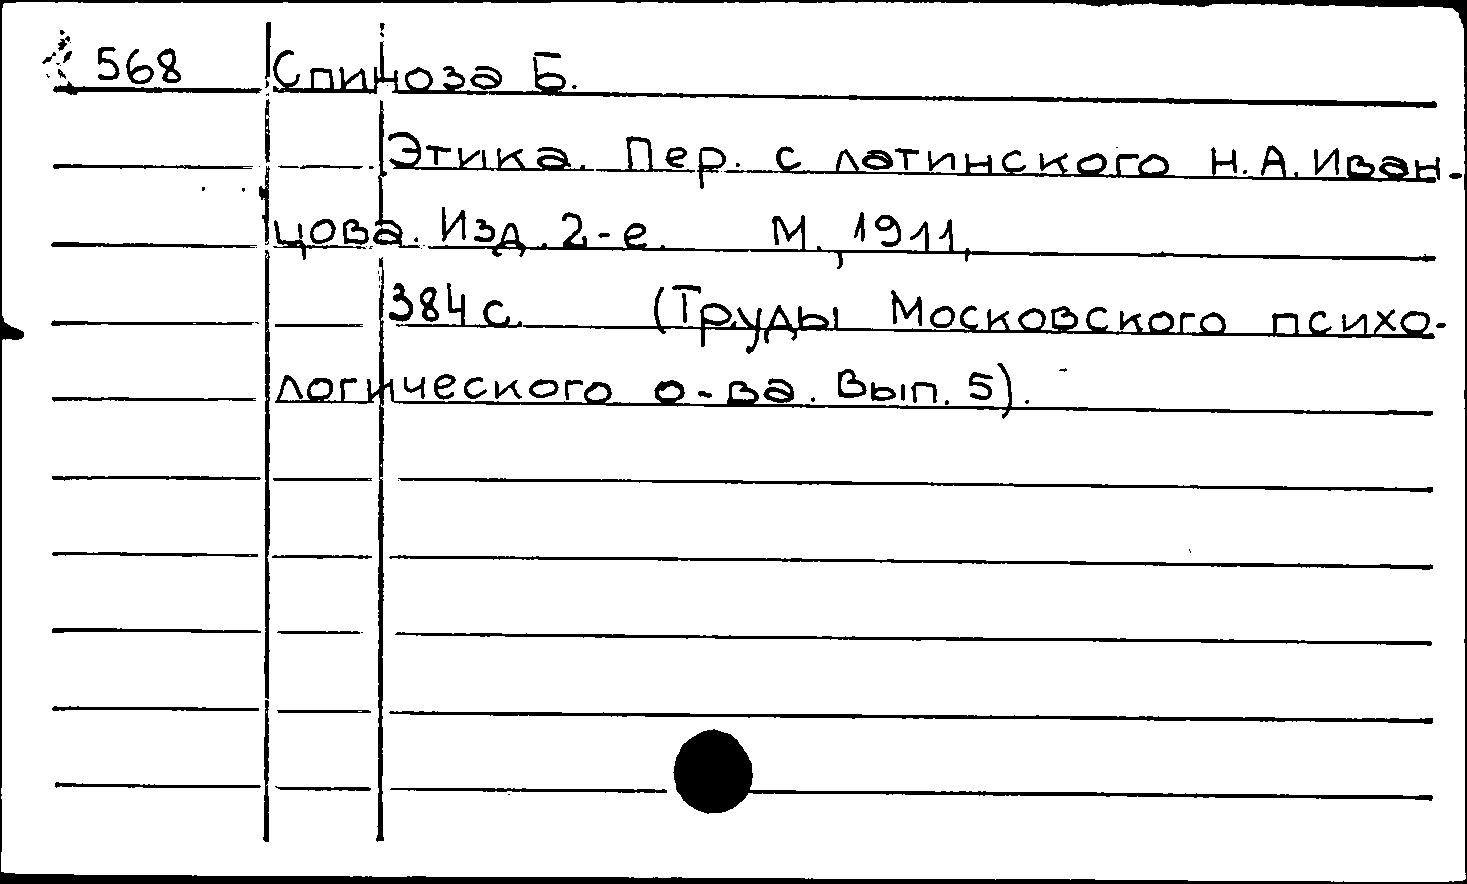 568 Спиноза Б.
Этика. Пер. с латинского Н.А. Иван-
цова. Изд. 2-е. М., 1911,
384 с. (Труды Московского психо-
логического о-ва. Вып. 5).